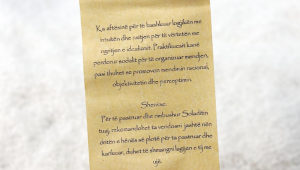 Ka aftësinë për të bashkuar logjikën me
intuitën dhe rritjen për të vërtetën me
ngritjen e idealeve. Praktikuesit kanë
përdorur sodalit për të organizuar mendjen,
pasi thuhet se promovon mendimin racional,
objektivitetin dhe perceptimin.
Shenime:
Për të pastruar dhe rimbushur Sodalitën
tuaj, rekomandohet ta vendosni jashtë nën
dritën e hënës së plotë për ta pastruar dhe
karikuar, duhet të shmangni lagien e tij me
ujë.